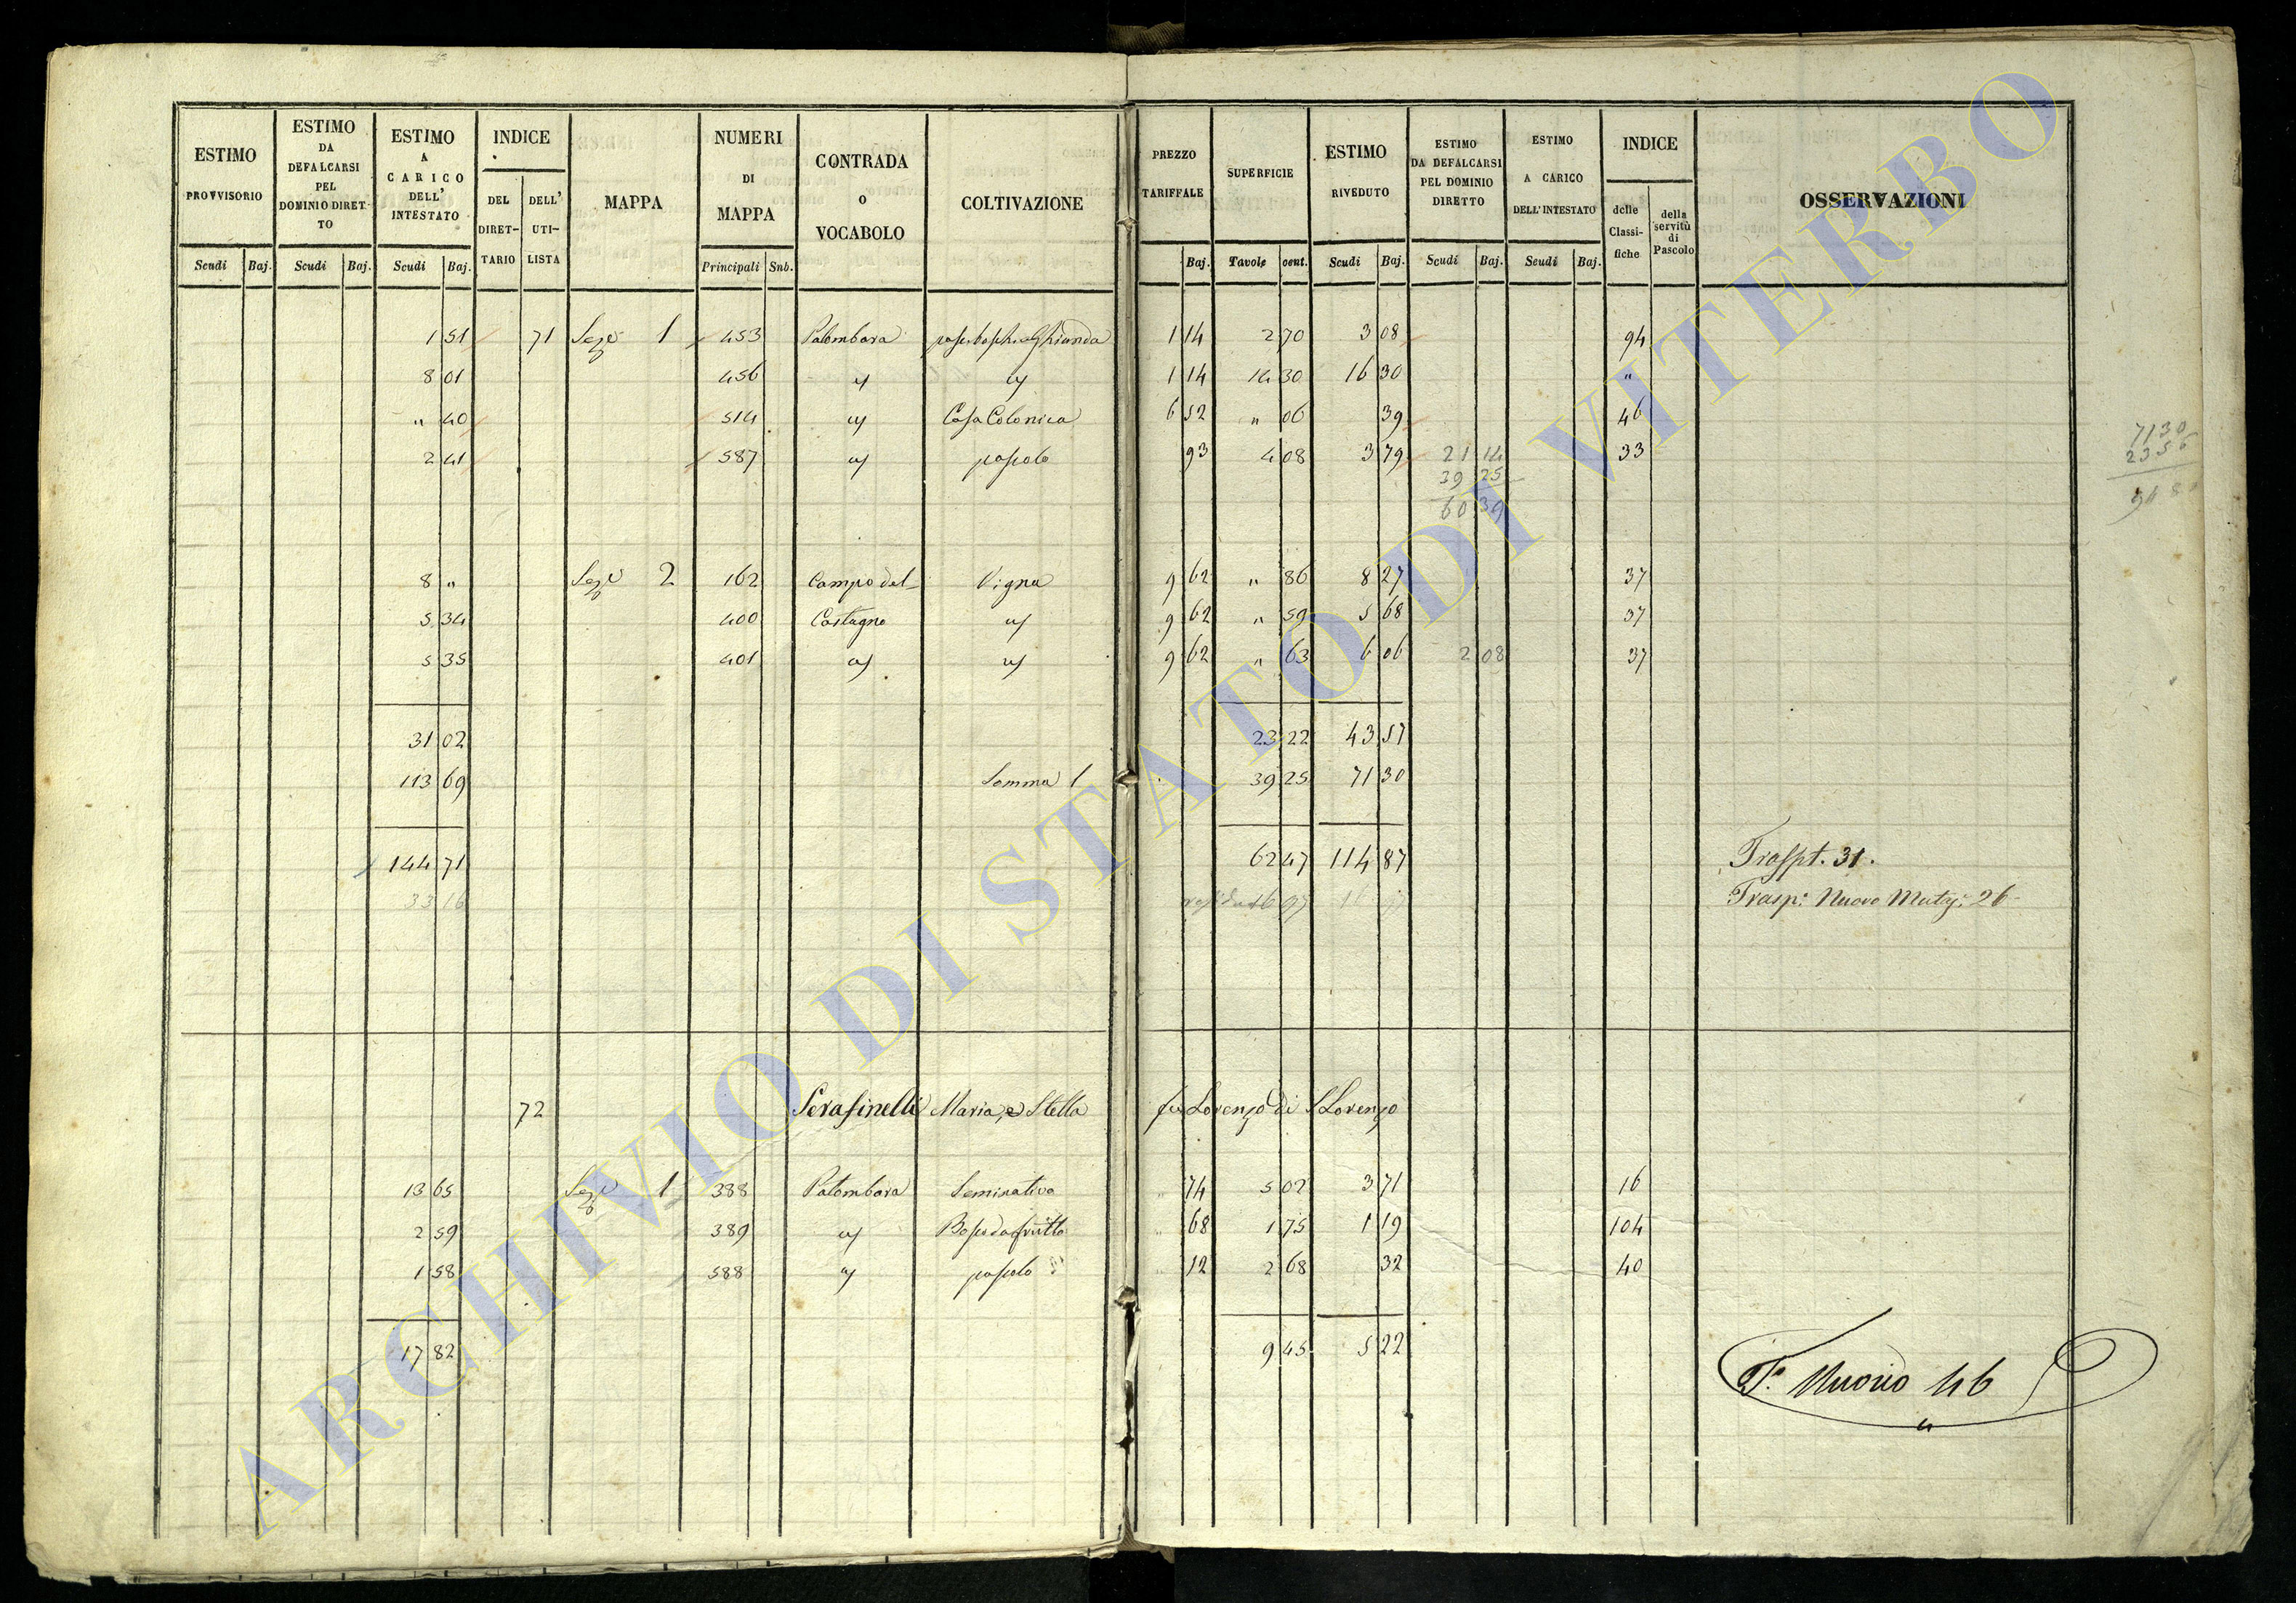 ESTIMO PROVVISORIO | ESTIMO DA DEFALCARSI PEL DOMINIO DIRET-TO | ESTIMO A CARICO DELL' INTESTATO | INDICE DEL DIRET-TARIO | DELL' UTI-LISTA | MAPPA | NUMERI DI MAPPA | CONTRADA O VOCABOLO | COLTIVAZIONE | PREZZO TARIFFALE | SUPERFICIE | ESTIMO RIVEDUTO | ESTIMO DA DEFALCARSI PEL DOMINIO DIRETTO | ESTIMO A CARICO DELL'INTESTATO | INDICE delle Classi-fiche | della servitù di Pascolo | OSSERVAZIONI
Scudi Baj. | Scudi Baj. | Scudi Baj. | Principali Sub. | Baj. | Tavole cent. | Scudi Baj. | Scudi Baj. | Scudi Baj.
1 51 71 Sez.e 1 453 Palombara 1 14 2 70 3 08 94
8 01 456 " " 1 14 14 30 16 30 "
" 40 514 " Casa Colonica 6 52 " 06 39 46
2 41 587 " pascolo 93 4 08 3 79 21 14 33
39 25
60 39
7130
8 " Sez.e 2 162 Campo del Vigna 9 62 " 86 8 27 37
5 34 400 Castagno " 9 62 " 59 5 68 37
5 35 401 " " 9 62 " 63 6 06 2 08 37
31 02 23 22 43 57
113 69 Somma 1 39 25 71 30
144 71 62 47 114 87 Traspt. 31.
33 16 Trasp: Nuovo 26
72 Serafinelli Maria, e Stella fu Lorenzo di S Lorenzo
13 65 Sez.e 1 388 Palombara Seminativo " 74 5 02 3 71 16
2 59 389 " Bosco da frutto " 68 1 75 1 19 104
1 58 588 " pascolo " 12 2 68 32 40
17 82 9 45 5 22
T. Nuovo 46
ARCHIVIO DI STATO DI VITERBO